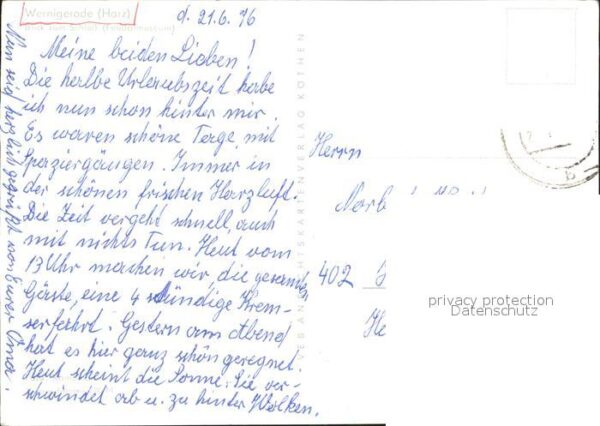 Wernigerode (Harz)
d. 21.6.76
Blick zum Schloß (Feudalmuseum)
Meine beiden Lieben!
Die halbe Urlaubszeit habe
ich nun schon hinter mir.
Es waren schöne Tage, mit
Spaziergängen. Immer in
der schönen frischen Harzluft.
Die Zeit vergeht schnell, auch
mit nichts Tun. Heut vom
13 Uhr machen wir, die gesamten
Gäste, eine 4 stündige Krem-
serfahrt. Gestern am Abend
hat es hier ganz schön geregnet.
Heut scheint die Sonne. Sie ver-
schwindet ab u. zu hinter Wolken.
Nun seid herzlich gegrüßt von Eurer Oma.
KÖTHEN
Herrn
Norb
402
He
privacy protection
Datenschutz